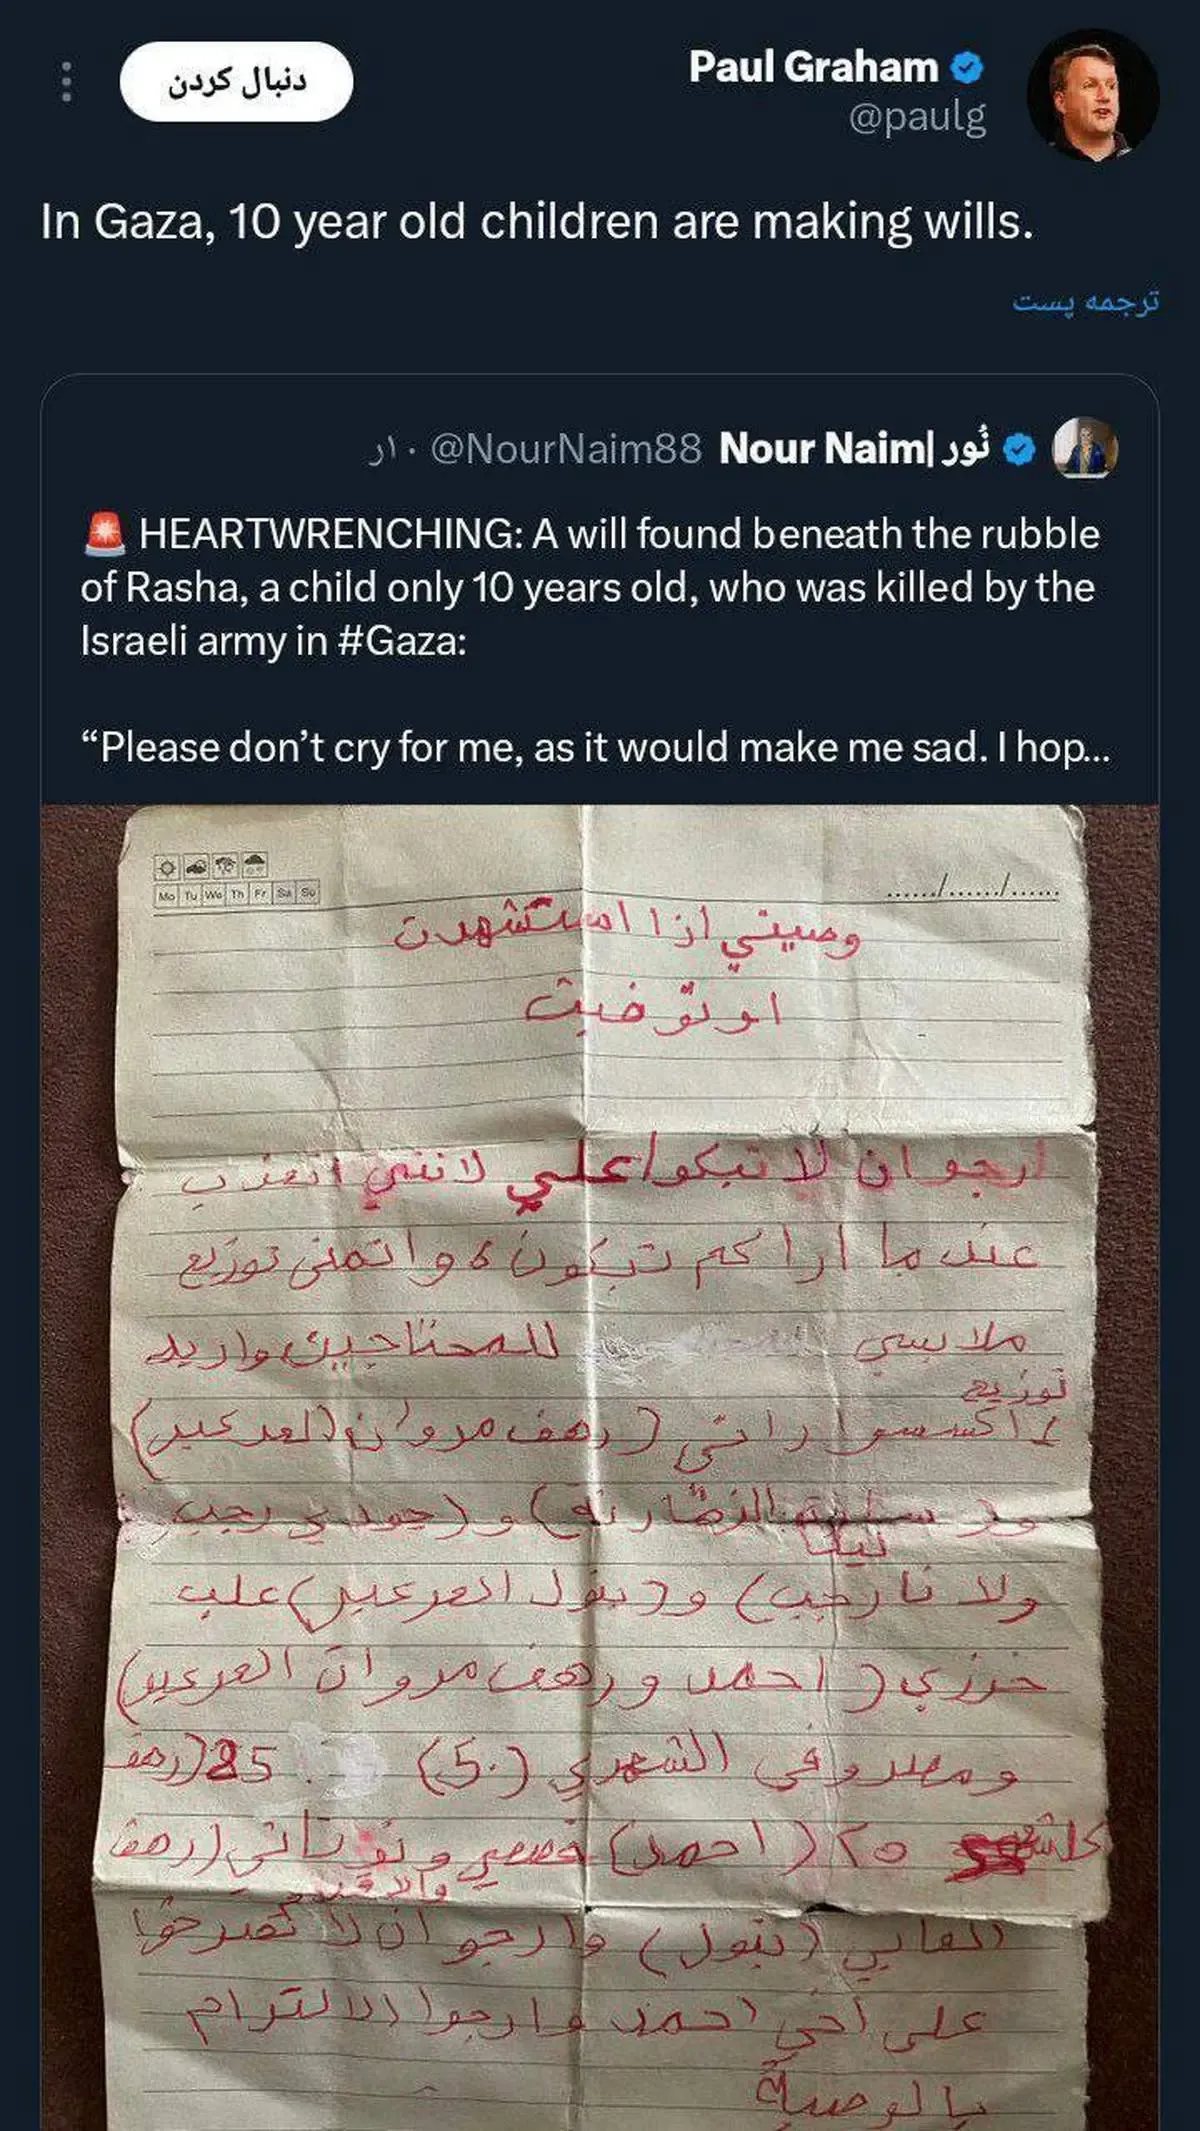 دنبال کردن
Paul Graham
@paulg
In Gaza, 10 year old children are making wills.
ترجمه پست
Nour Naim| نُور @NourNaim88 · ۱۰ر
🚨 HEARTWRENCHING: A will found beneath the rubble
of Rasha, a child only 10 years old, who was killed by the
Israeli army in #Gaza:
“Please don’t cry for me, as it would make me sad. I hop...
Mo Tu We Th Fr Sa Su
....../....../......
وصيتي اذا استشهدت
او توفيت
ارجو ان لا تبكوا علي لانني اتعذب
عندما اراكم تبكون واتمنى توزيع
ملابسي للمحتاجين واريد
توزيع
اكسسواراتي (رهف مروان العرعير)
و و (جودي رجب)
ولانا رجب) و (بتول العرعير) علب
خرزي (احمد ورهف مروان العرعير)
ومصروفي الشهري (50) 25 (رهف
٢٥ (احمد) قصصي ودفاتري (رهف
العابي (بتول) وارجو ان لا تصرخوا
على اخي احمد وارجوا الالتزام
بالوصية